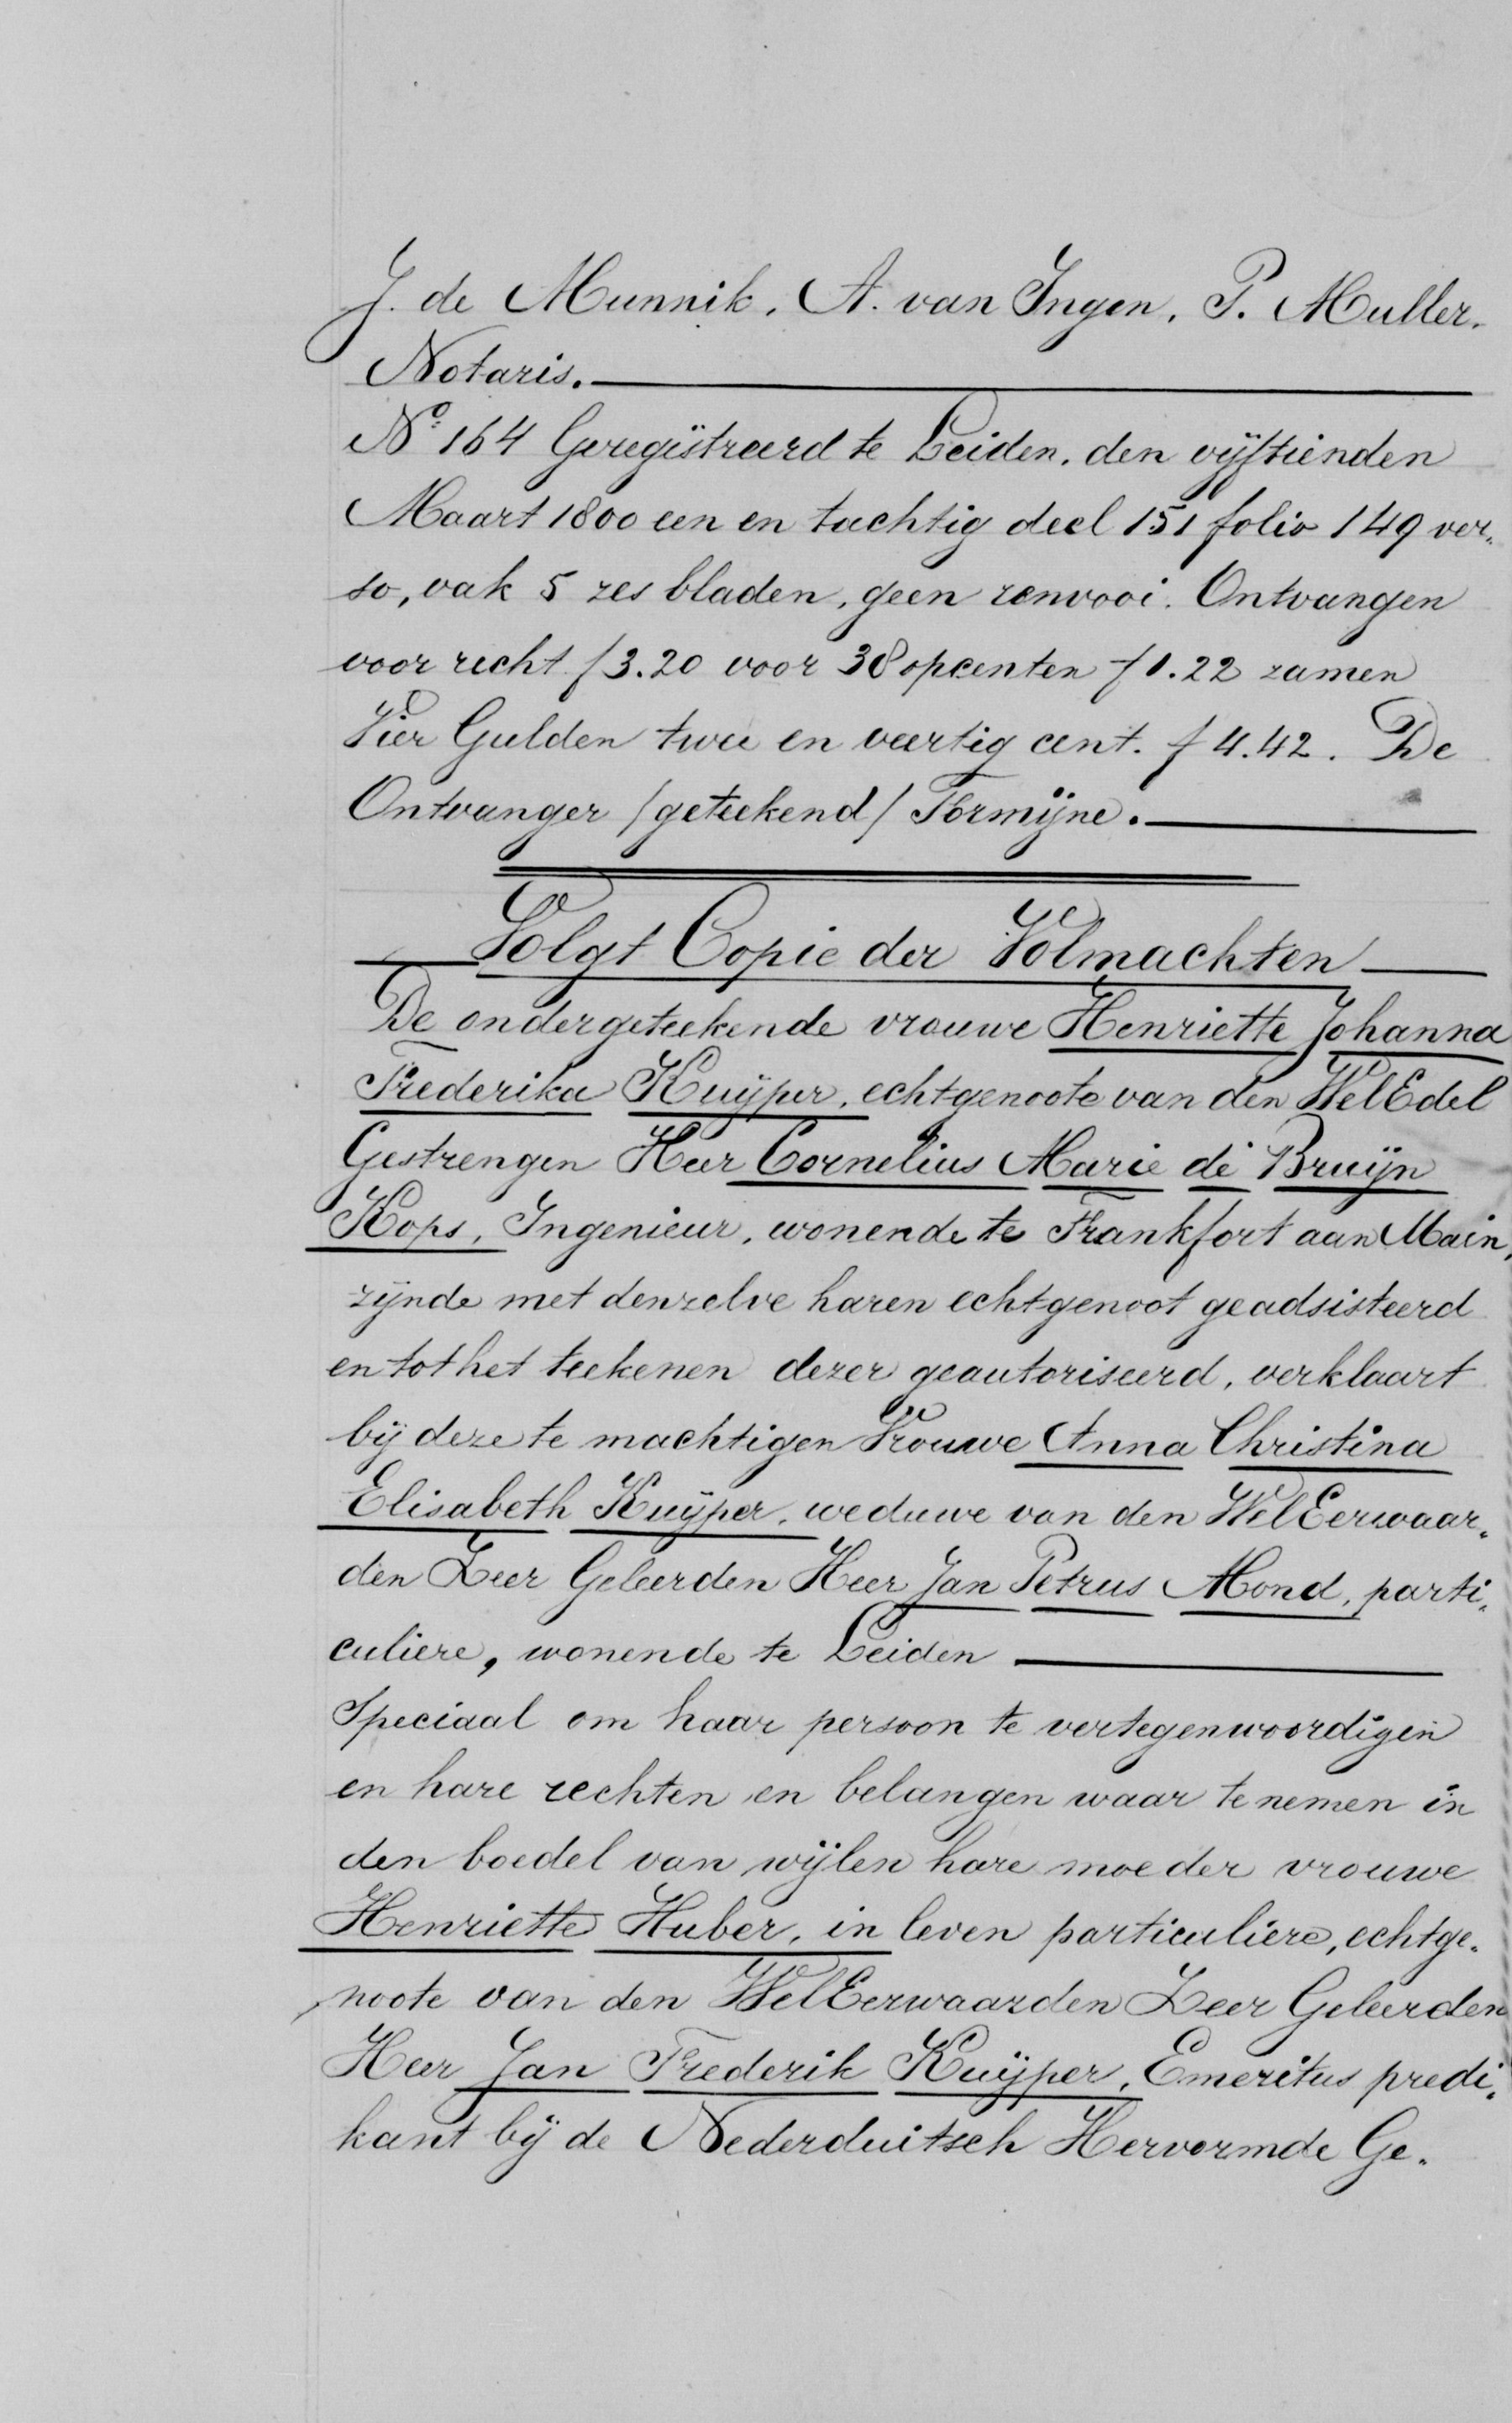 J. de Munnik, A. van Ingen, P. Muller.
Notaris.
No 164 Geregistreerd te Leiden, den vijftienden
Maart 1800 een en tachtig deel 151 folio 149 ver„
so, vak 5 zes bladen, geen renvooi. Ontvangen
voor recht f 3.20 voor 38 opcenten f 1.22 zamen
Vier Gulden twee en veertig cent. f 4.42. De
Ontvanger /geteekend/ Formijne.
Volgt Copie der Volmachten
De ondergeteekende vrouwe Henriette Johanna
Frederika Kuijper, echtgenoote van den WelEdel
Gestrengen Heer Cornelius Marie de Bruijn
Kops, Ingenieur, wonende te Frankfort aan Main,
zijnde met denzelve haren echtgenoot geadsisteerd
en tot het teekenen dezer geautoriseerd, verklaart
bij deze te machtigen Vrouwe Anna Christina
Elisabeth Kuijper, weduwe van den WelEerwaar„
den Zeer Geleerden Heer Jan Petrus Mond, parti„
culiere, wonende te Leiden
Speciaal om haar persoon te vertegenwoordigen
en hare rechten en belangen waar te nemen in
den boedel van wijlen hare moeder vrouwe
Henriette Huber, in leven particuliere, echtge„
noote van den WelEerwaarden Zeer Geleerden
Heer Jan Frederik Kuijper, Emeritus predi„
kant bij de Nederduitsch Hervormde Ge„